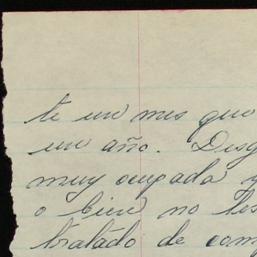 te un mes que
un año. Desg
muy ocupada y
o bien no les
tratado de com